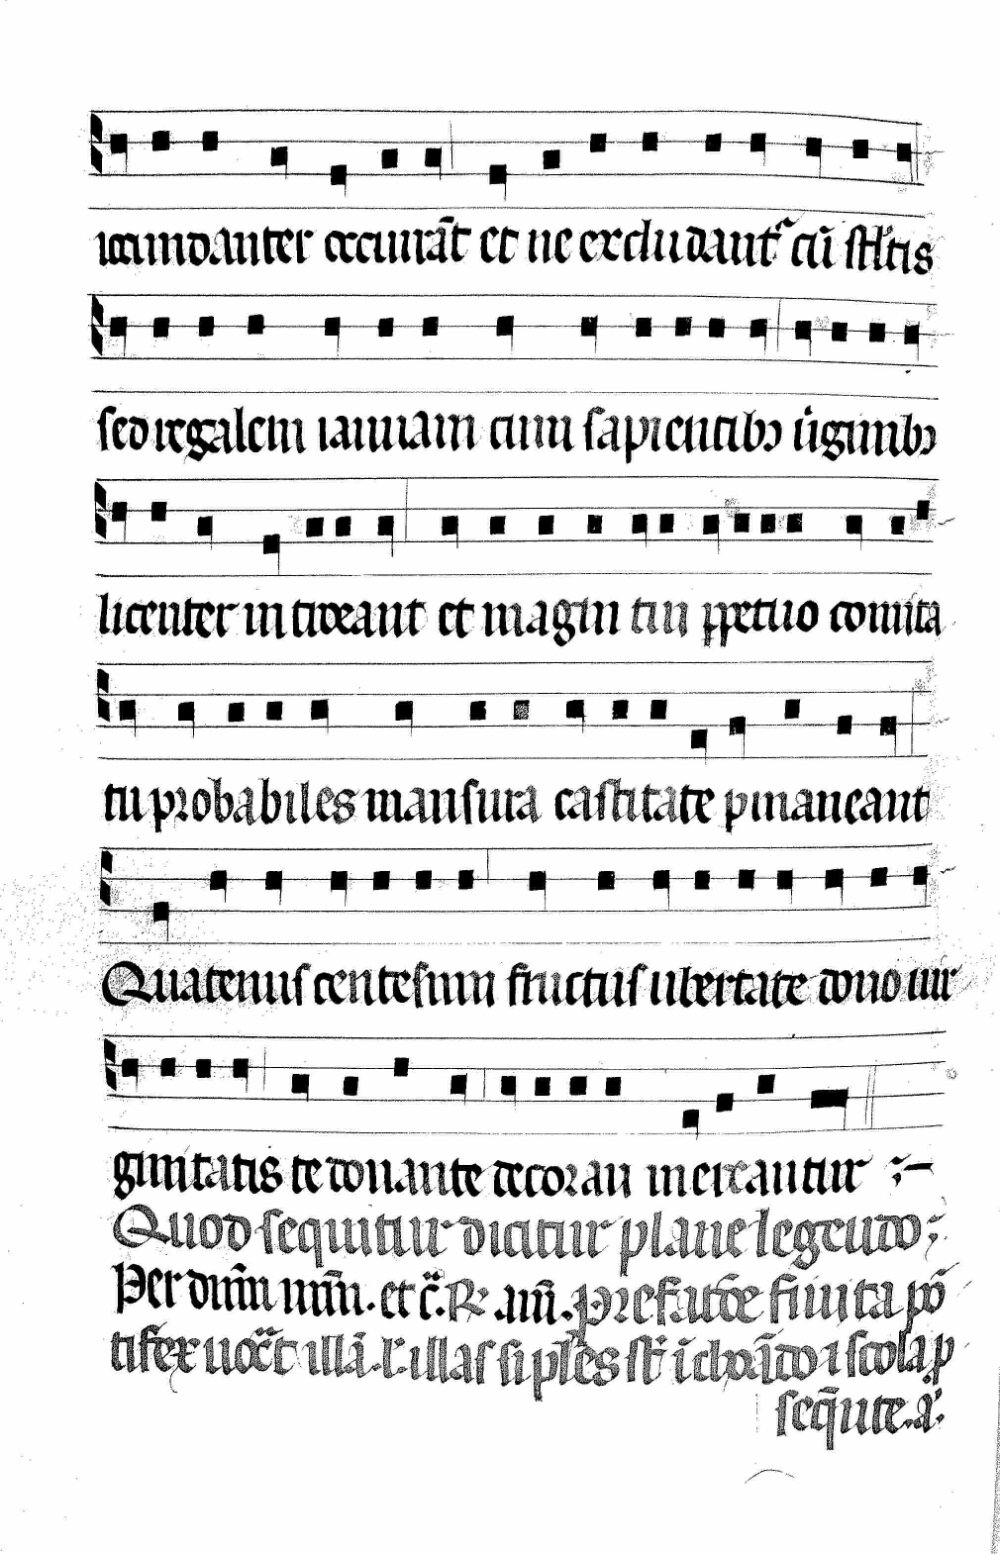 iocundanter occurrāt et ne excludant᷑ cū stl̓tis
sed regalem ianuam cum sapientibꝫ v̓ginibꝫ
licenter introeant et in agni tui ꝑpetuo comita
tu probabiles mansura castitate ꝑmaneant
Quatenus centesimi fructus ubertate dono vir
ginitatis te donante decorari mereantur
Quod sequitur dicitur plane legendo;
Per dn̄m nr̄m. et c̄. ℟. am̄. Prefatōe finita pō
tifex uocat illā. l̓ illas si pl̓es st̓ īchoādo i scola ꝓ
seq̄nte. a.